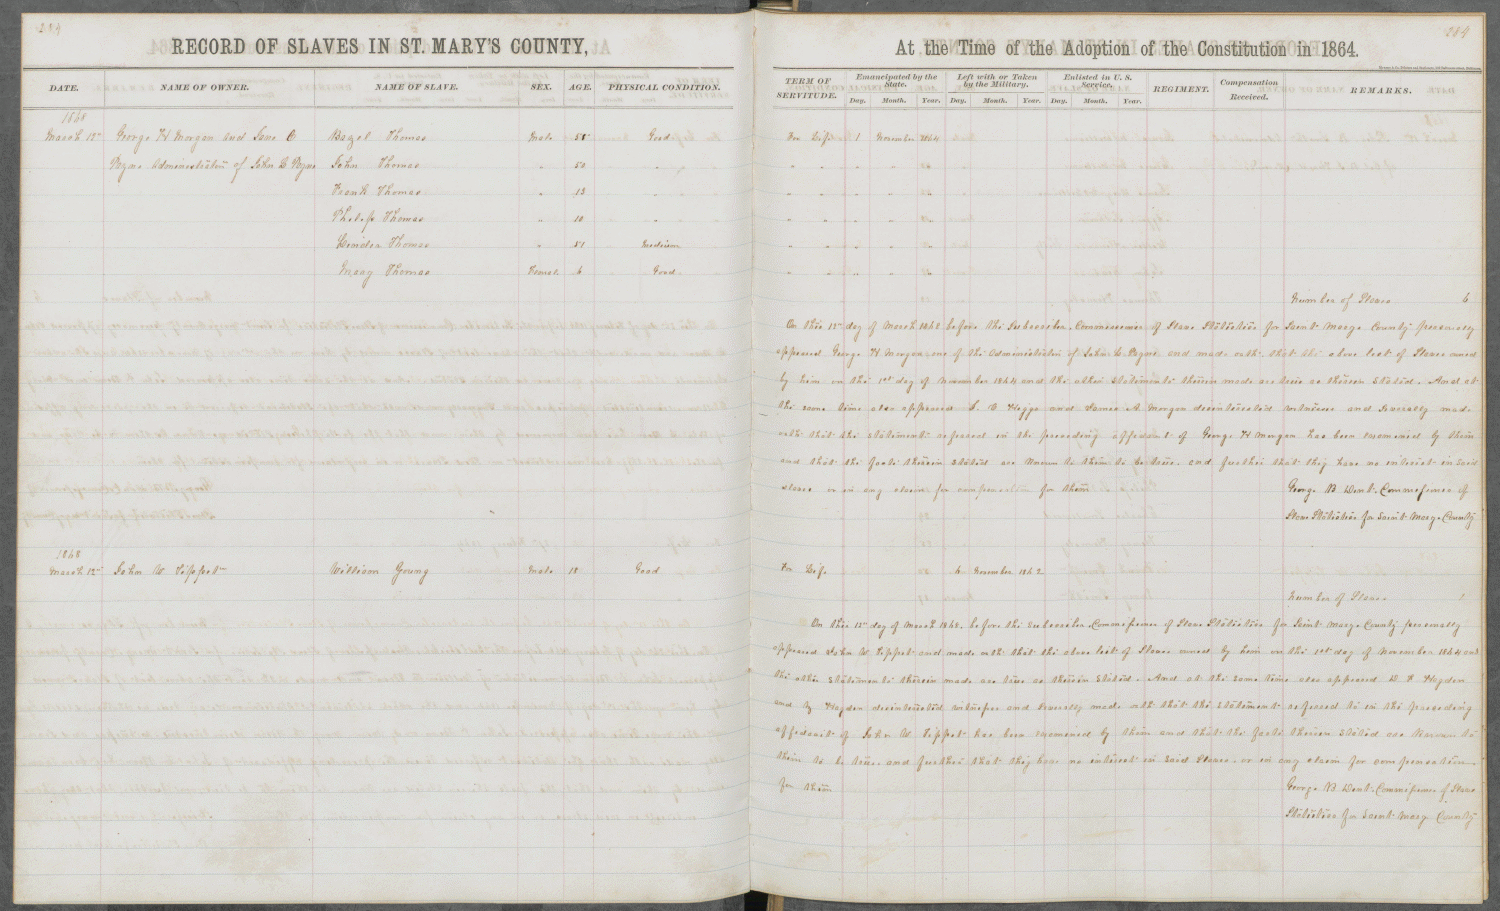 284
RECORD OF SLAVES IN ST. MARY'S COUNTY,
DATE. NAME OF OWNER. NAME OF SLAVE. SEX. AGE. PHYSICAL CONDITION.
1868
March 12" George H Morgan and Jane C Bazel Thomas Male 55 Good
Administrators of John John Thomas " 50 " "
Frank Thomas " 13 " "
Philip Thomas " 10 " "
Thomas " 51 Medium
Mary Thomas Femal. 6 Good
1868
March 12" John W Tippett William Young Male 18 Good
284
At the Time of the Adoption of the Constitution in 1864.
TERM OF SERVITUDE. Emancipated by the State. Left with or Taken by the Military. Enlisted in U. S. Service. REGIMENT. Compensation Received. REMARKS.
Day. Month. Year. Day. Month. Year. Day. Month. Year.
For Life 1 November 1864
" " " " "
" " " " "
" " " " "
" " " " "
" " " " "
Number of Slaves 6
On this 12" day of March 1868 before the Subscriber, Commissioner of Slave Statistics for Saint Marys County personally
appeared George H Morgan one of the administrators of John and made oath that the above list of Slaves owned
by him on the 1st day of November 1864 and the other statements therein made are true as therein stated. And at
the same time also appeared and James A. Morgan disinterested witnesses and severally made
oath that the statements referred in the preceeding affidavit of George H Morgan has been examened by them
and that the facts therein stated are known to them to be true. and further that they have no interest in said
slaves or in any claim for compensation for them George B Dent. Commissioner of
Slave Statistics for Saint Marys County
For Life 6 November 1862
Number of Slaves 1
On this 12" day of March 1868, before the subscriber Commissioner of Slave Statistics for Saint Marys County personally
appeared John W Tippett and made oath that the above list of Slaves owned by him on the 1st day of November 1864 and
the other statements therein made are true as therein stated. And at the same time also appeared Hayden
and Hayden disinterested witnesses and severally made oath that the statement refered to in the preceeding
affidavit of John W Tippett has been examened by them and that the facts therein stated are known to
them to be true. and further that they have no interest in said Slaves. or in any claim for compensation
for them George B Dent. Commissioner of Slave
Statistics for Saint Marys County